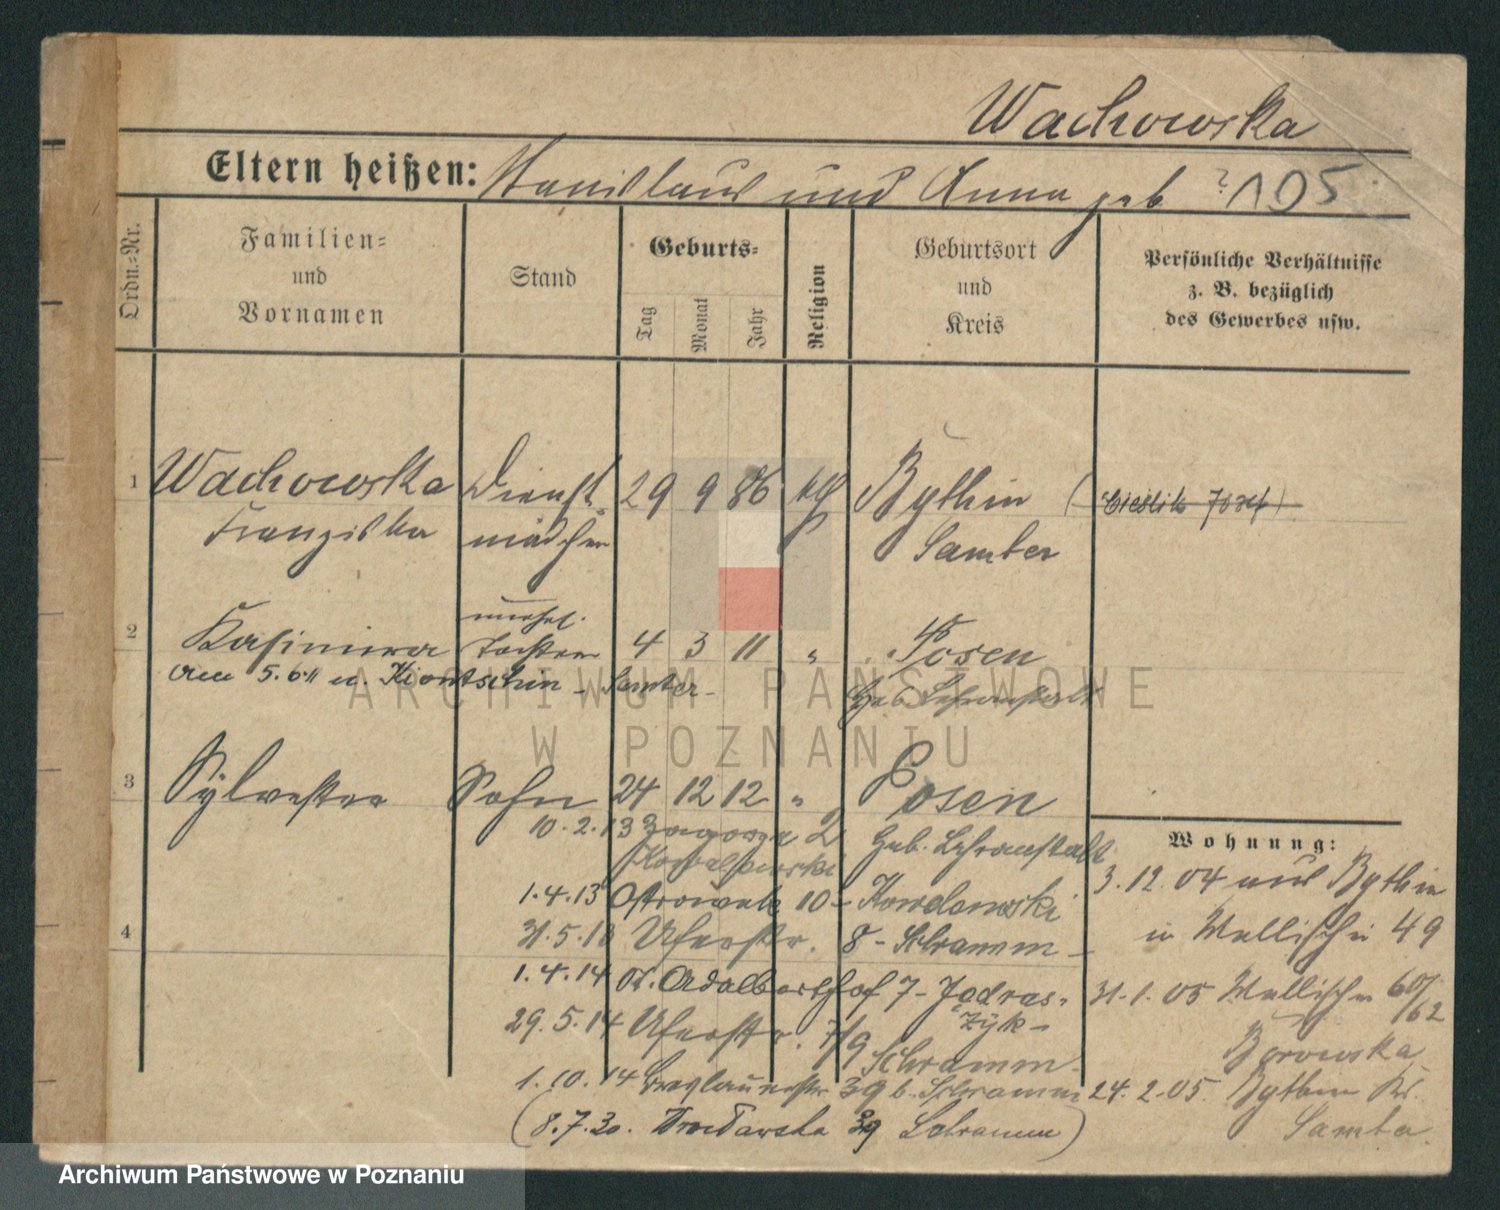 Wachowska
Eltern heißen: Stanislaus und Anna geb ? 105
Ordn.-Nr.
Familien-
und
Vornamen
Stand
Geburts-
Tag
Monat
Jahr
Religion
Geburtsort
und
Kreis
Persönliche Verhältnisse
z. B. bezüglich
des Gewerbes usw.
1 Wachowska Dienst- 29 9 86 kth Bythin (Cieslik Josef)
Franziska mädchen Samter
unehel.
2 Kasimira Tochter 4 3 11 " Posen
am 5. 6. 11 n. Kiontschin - Samter - Heb. Lehranstalt
3 Sylvester Sohn 24 12 12 " Posen
10.2.13 Zagorze 2 Heb. Lehranstalt
Kowalewski
1.4.13 Ostrowek 10 -
31.5.13 Uferstr. 8 - Schramm -
4
1.4.14 St. Adalberthof 7 - Jedras-
zyk -
29.5.14 Uferstr. 7/9 Schramm -
1.10.14 Breslauerstr 39 b. Schramm
(8.7.30. Wrocławska 39 Schramm)
Wohnung:
3.12.04 aus Bythin
in Wallischei 49
31.1.05 Wallischei 60/62
Borowska
24.2.05. Bythin Kr.
Samter.
ARCHIWUM PAŃSTWOWE
W POZNANIU
Archiwum Państwowe w Poznaniu